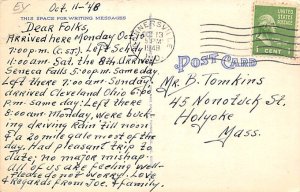 EV Oct. 11-'48
THIS SPACE FOR WRITING MESSAGES
Dear Folks
Arrived here Monday Oct 10
7:00 p.m. (C.ST). Left
11:00 am. Sat. the 8th. Arrived
Seneca Falls 5:00 p.m. Same
day: Left there 7:30 am. Sunday
arrived Cleveland Ohio 6:00
p.m. Same day: Left there
8:00 am Monday, were buck-
ing driving rain till noon
& a 20 mile gale most of the
day. Had pleasant trip to
date; no major mishap
all of us are feeling well-
Please do not worry. Love
& Regards from Joe & family.
1948
UNITED STATES POSTAGE
1 CENT
POST CARD
Mr. B. Tomkins
45 Nonotuck St.
Holyoke
Mass.